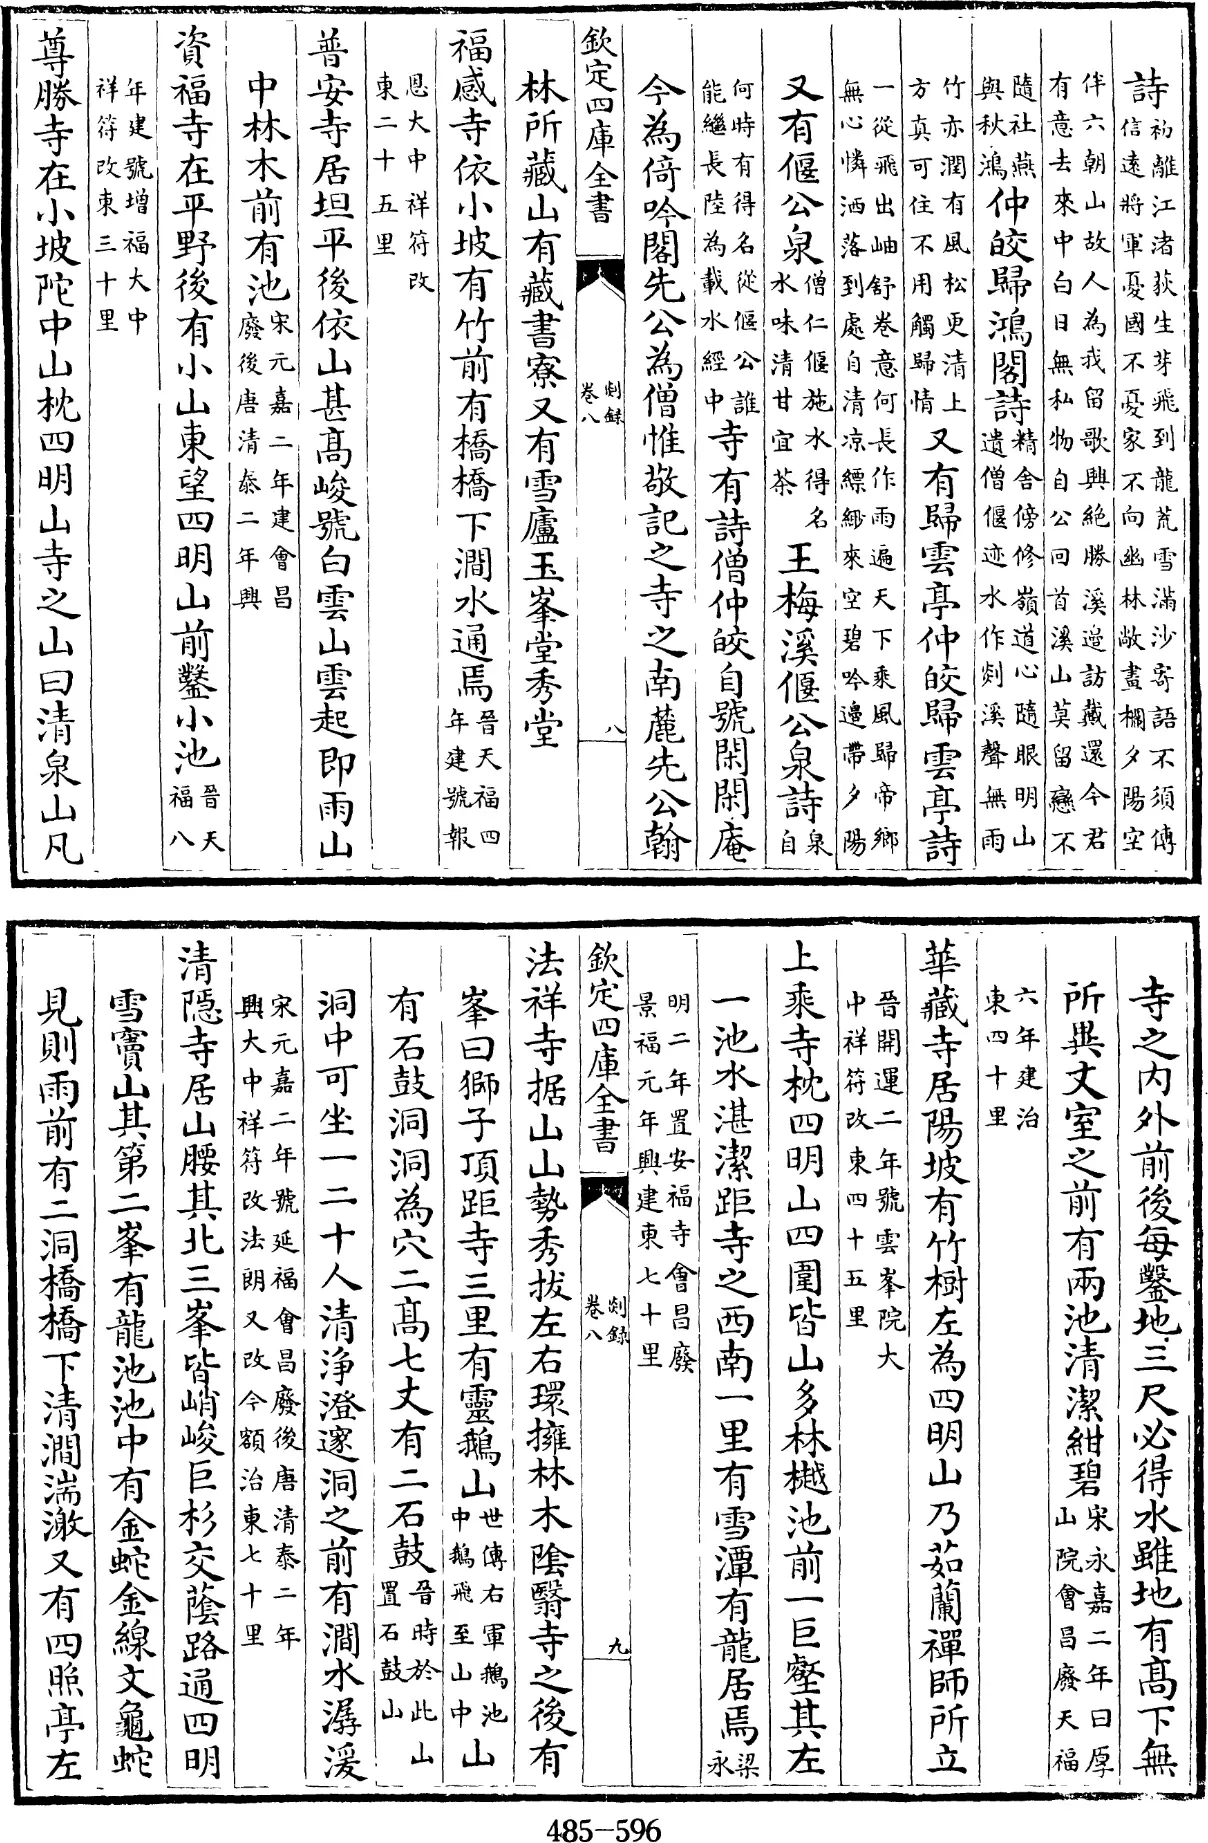 詩初離江渚荻生芽飛到龍荒雪滿沙寄語不須傳信遠將軍憂國不憂家不向幽林敞畫欄夕陽空
伴六朝山故人為我留歌興絶勝溪邉訪戴還今君有意去來中白日無私物自公回首溪山莫留戀不
隨社燕與秋鴻仲皎歸鴻閣詩精舍傍修嶺道心隨眼明山遺僧偃迹水作剡溪聲無雨
竹亦潤有風松更清上方真可住不用觸歸情又有歸雲亭仲皎歸雲亭詩
一從飛出岫舒卷意何長作雨遍天下乘風歸帝鄉無心憐洒落到處自清凉縹緲來空碧吟邉帶夕陽
又有偃公泉僧仁偃施水得名水味清甘宜茶王梅溪偃公泉詩泉自
何時有得名從偃公誰能繼長陸為載水經中寺有詩僧仲皎自號閑閑庵
今為倚吟閣先公為僧惟敬記之寺之南麓先公翰
欽定四庫全書 剡録 卷八 八
林所藏山有藏書寮又有雪廬玉峯堂秀堂
福感寺依小坡有竹前有橋橋下澗水通焉晉天福四年建號報
恩大中祥符改東二十五里
普安寺居坦平後依山甚髙峻號白雲山雲起即雨山
中林木前有池宋元嘉二年建會昌廢後唐清泰二年興
資福寺在平野後有小山東望四明山前鑿小池晉天福八
年建號增福大中祥符改東三十里
尊勝寺在小坡陀中山枕四明山寺之山曰清泉山凡
寺之内外前後每鑿地三尺必得水雖地有髙下無
所異丈室之前有兩池清潔紺碧宋永嘉二年曰厚山院會昌廢天福
六年建治東四十里
華藏寺居陽坡有竹樹左為四明山乃茹蘭禪師所立
晉開運二年號雲峯院大中祥符改東四十五里
上乘寺枕四明山四圍皆山多林樾池前一巨壑其左
一池水湛潔距寺之西南一里有雪潭有龍居焉梁永
明二年置安福寺會昌廢景福元年興建東七十里
欽定四庫全書 剡録 卷八 九
法祥寺据山山勢秀拔左右環擁林木陰翳寺之後有
峯曰獅子頂距寺三里有靈鵝山世傳右軍鵝池中鵝飛至山中山
有石鼓洞洞為穴二髙七丈有二石鼓晉時於此山置石鼓山
洞中可坐一二十人清浄澄邃洞之前有澗水潺湲
宋元嘉二年號延福會昌廢後唐清泰二年興大中祥符改法朗又改今額治東七十里
清隱寺居山腰其北三峯皆峭峻巨杉交蔭路通四明
雪竇山其第二峯有龍池池中有金蛇金線文龜蛇
見則雨前有二洞橋橋下清澗湍漵又有四照亭左
485-596